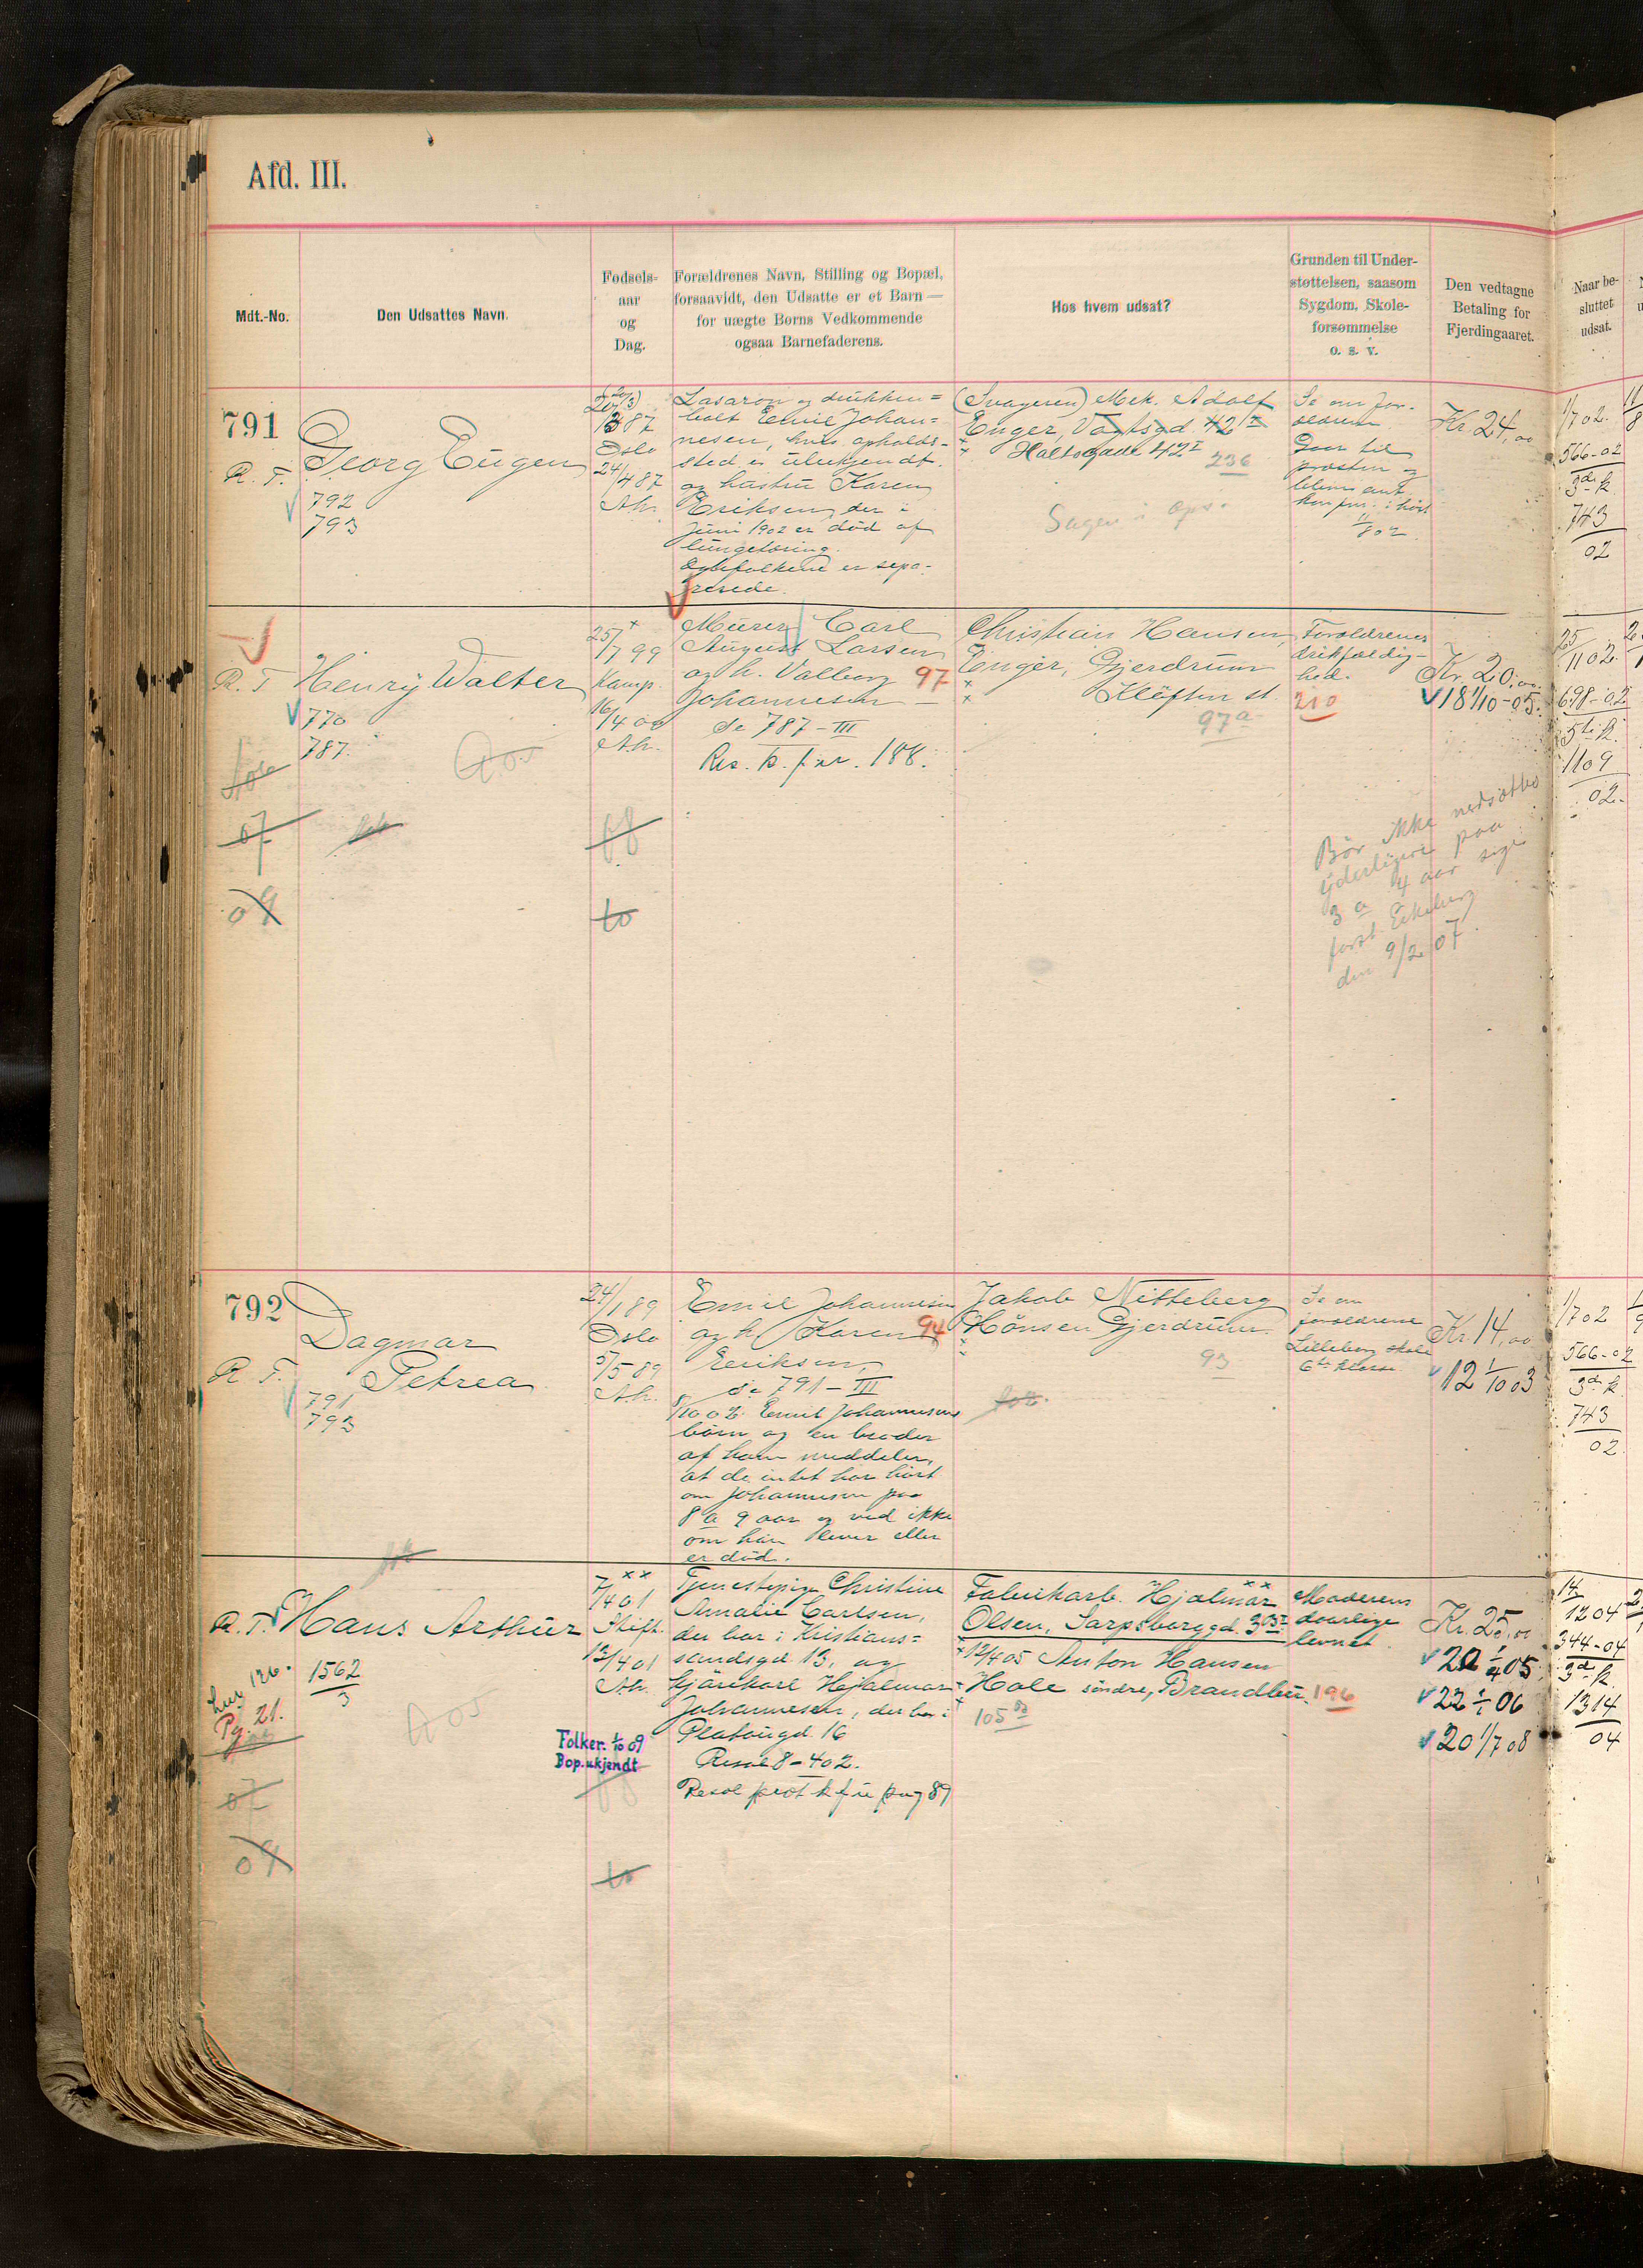 Afd. III.
Mdt.-No.
Den Udsattes Navn.
Fødsels-
aar
og
Dag.
Forældrenes Navn, Stilling og Bopæl,
forsaavidt, den Udsatte er et Barn —
for uægte Børns Vedkommende
ogsaa Barnefaderens.
Hos hvem udsat?
Grunden til Under-
støttelsen, saasom
Sygdom, Skole-
forsømmelse
o. s. v.
Den vedtagne
Betaling for
Fjerdingaaret.
Naar be-
sluttet
udsat.
791
R. F.
Georg Eugen
792
793
87
Oslo
24/4 87
Ah.
Lasaron og drukken=
bolt Emil Johan=
nesen, hvis opholds-
sted er ubekjendt.
og hustru Karen
Eriksen, der i
Juni 1902 er død af
lungetæring.
Ægtefolkene er sepa-
rerede.
(Svageren) Mek. Adolf
Enger, Vogtsgd. 42 I
Holtsgade 42 I
236
Sagen i Ops.
Se om for-
ældrene
Gaar til
præsten og
Kr. 24,00
1/7 02.
566-02
3d k.
743
02
R. F.
Henry Walter
770
787.
25/7 99
Kamp.
16/4 00
Ah.
Murer Carl
August Larsen
og h. Valborg 97
Johannesen —
Se 787 – III
Res. k. f. nr. 188.
Christian Hansen
Enger, Gjerdrum
Kløften st.
97a
Forældrenes
drikfældig-
hed.
210
Kr. 20,00
18 1/10-05.
25/11 02.
698-02
5te k.
1109
02.
07
08
09
10
Bør ikke nedsættes
yderligere paa
3 a 4 aar siger
forst. Ekeberg
den 9/2 07.
792
R. F.
Dagmar
Petrea
791
793
24/1 89
Oslo
5/5 89
Ah.
Emil Johannesen
og h. Karen 94
Eriksen,
Se 791 – III
8/10 02. Emil Johannesens
børn og en broder
af ham meddeler,
at de intet har hørt
om Johannesen paa
8 a 9 aar og ved ikke
om han lever eller
er død.
Jakob Nitteberg
Hønsen Gjerdrum.
93
Se om
forældrene
Lilleborg skole
6te klasse.
Kr. 14,00
12 1/10 03
1/7 02
566-02
3d k.
743
02.
R. F.
Hans Arthur
1562
3
Pg. 21.
7/4 01
Stift.
12/4 01
Ah.
Folker. 1/10 09
Bop. ukjendt
Tjenestepige Christine
Amalie Carlsen,
der bor i Kristians=
sandsgd 13, og
kjørekarl Hjalmar
Johannesen, der bor i
Platougd. 16
Resol 8-402.
Resol prot k f ü pag 89
Fabrikarb. Hjalmar
Olsen, Sarpsborggd. 3
12/4 05 Anton Hansen
Hole søndre, Brandbu. 196
105
Moderens
daarlige
levnet.
Kr. 25,00
20 1/4 05,
22 1/1 06
20 1/7 08
14/12 04
344-04
3d k.
1314
04
07
09
10